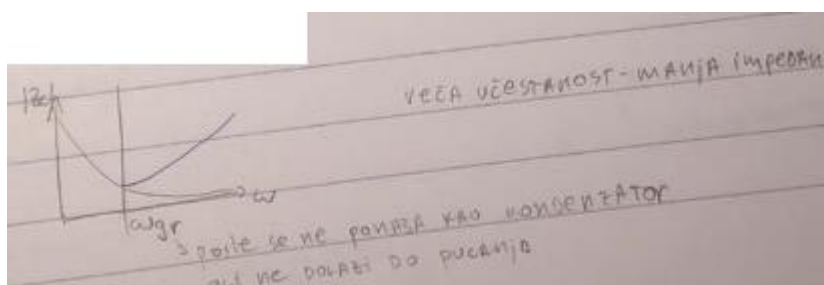 |Zc|
VEĆA UČESTANOST - MANJA IMPEDAN
ω
ωgr
posle se ne PONAŠA KAO KONDENZATOR
ALI NE DOLAZI DO PUCANJA